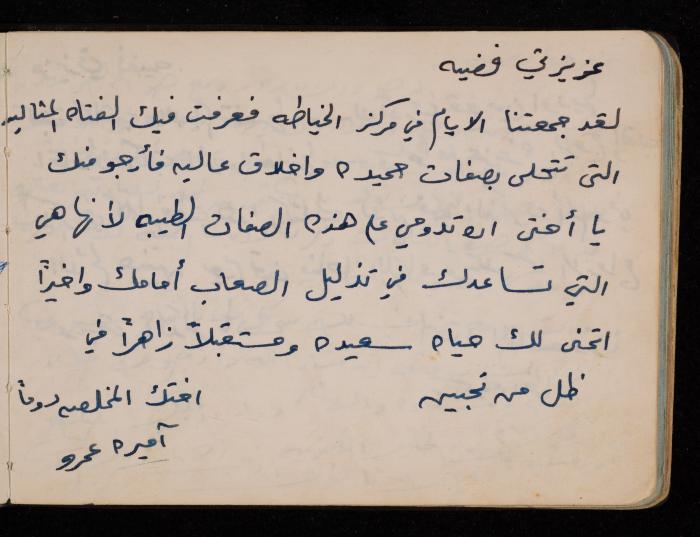 عزيزتي فضيه
لقد جمعتنا الايام في مركز الخياطه فعرفت فيك الفتاه المثاليه
التي تتحلى بصفات حميده واخلاق عاليه فأرجو منك
يا أختي ان تدومي على هذه الصفات الطيبه لأنها هي
التي تساعدك في تذليل الصعاب أمامك واخيراً
اتمنى لك حياه سعيده ومستقبلاً زاهراً في
ظل من تحبين
اختك المخلصه دوماً
أميره عمرو